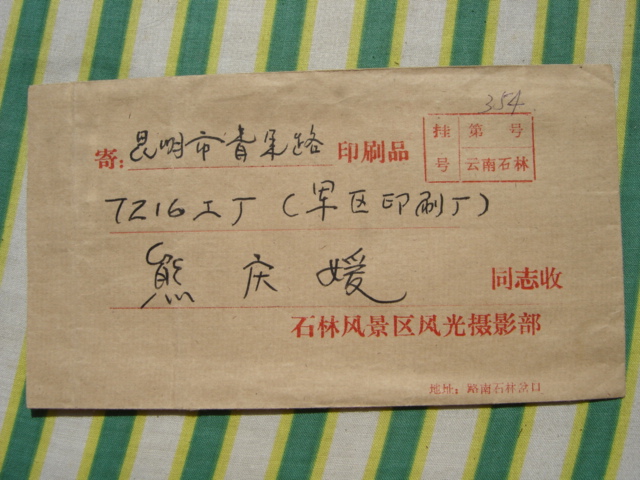 354
挂 第 号
号 云南石林
寄: 昆明市青年路 印刷品
7216工厂(军区印刷厂)
熊庆媛 同志收
石林风景区风光摄影部
地址: 路南石林岔口